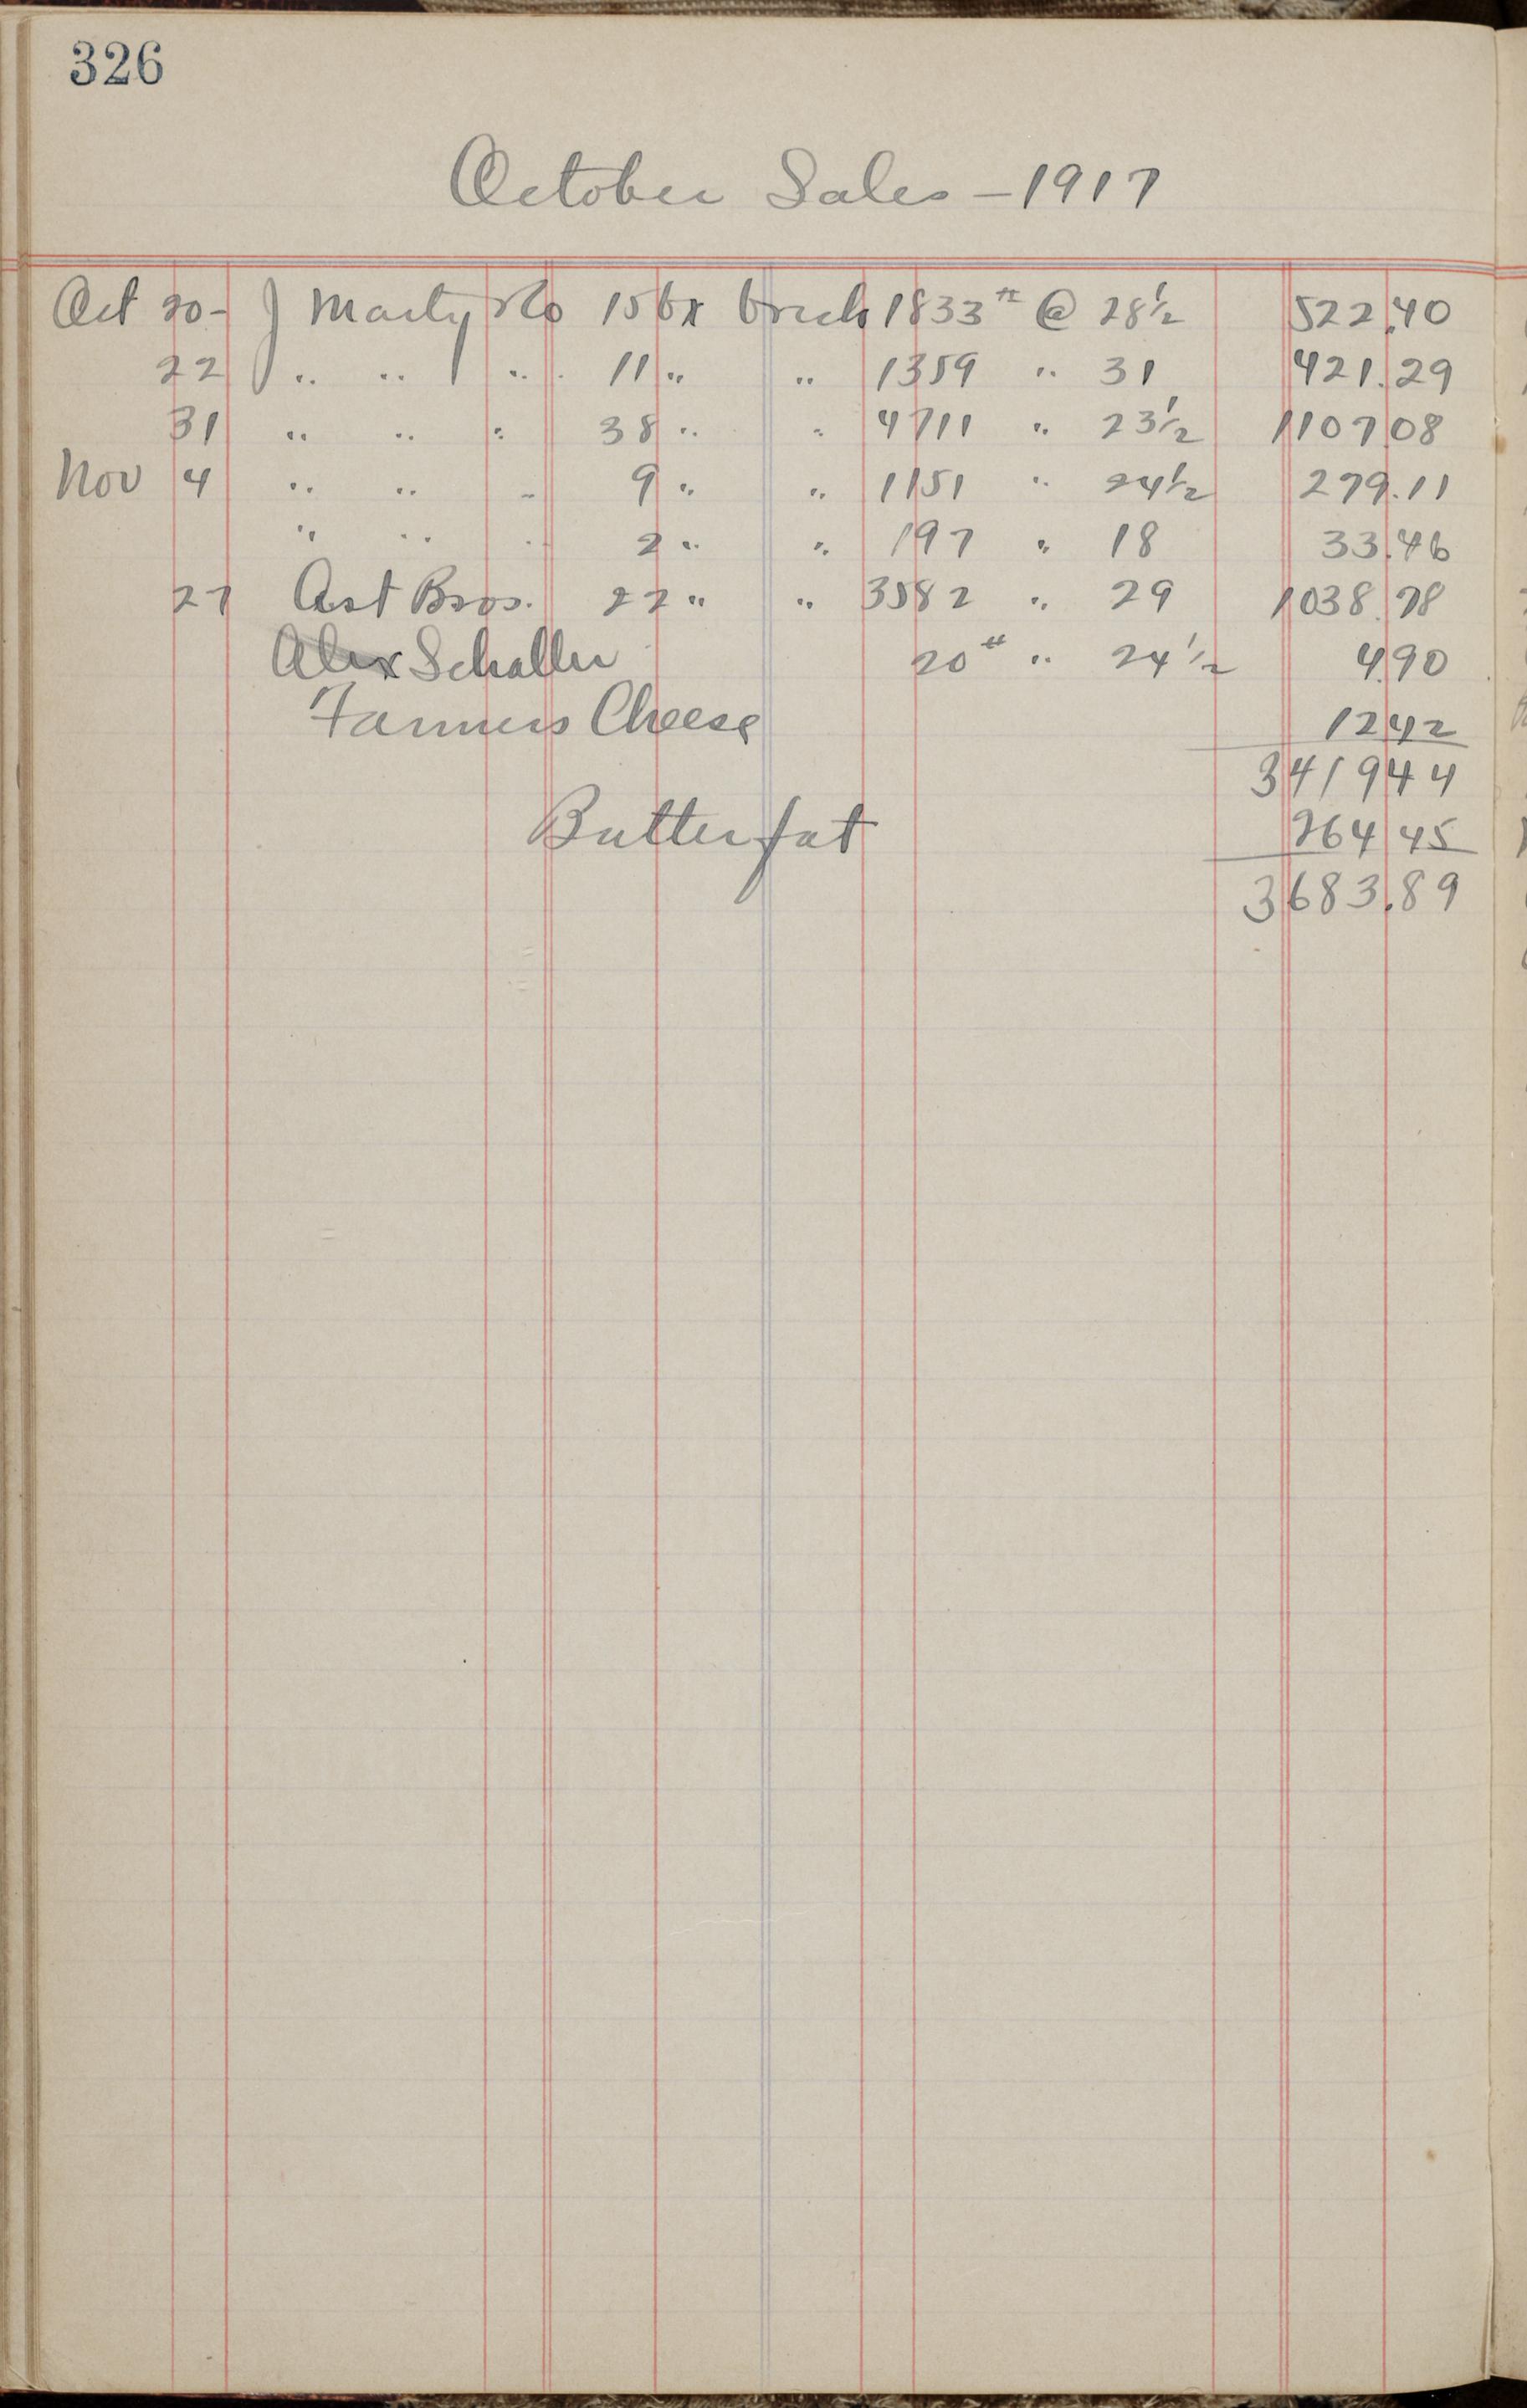 326
October Sales - 1917
Oct 20- J Marty & Co 15 bx brick 1833 # @ 28 1/2 522.40
22 " " " 11 " " 1359 " 31 421.29
31 " " " 38 " " 4711 " 23 1/2 1107 08
Nov 4 " " " 9 " " 1151 " 24 1/2 279.11
" " " 2 " " 197 " 18 33.46
27 Ast Bros. 22 " " 3582 " 29 1038.78
Alex Schaller 20 # " 24 1/2 4.90
Farmers Cheese 12 42
3419 44
Butterfat 264 45
3683.89